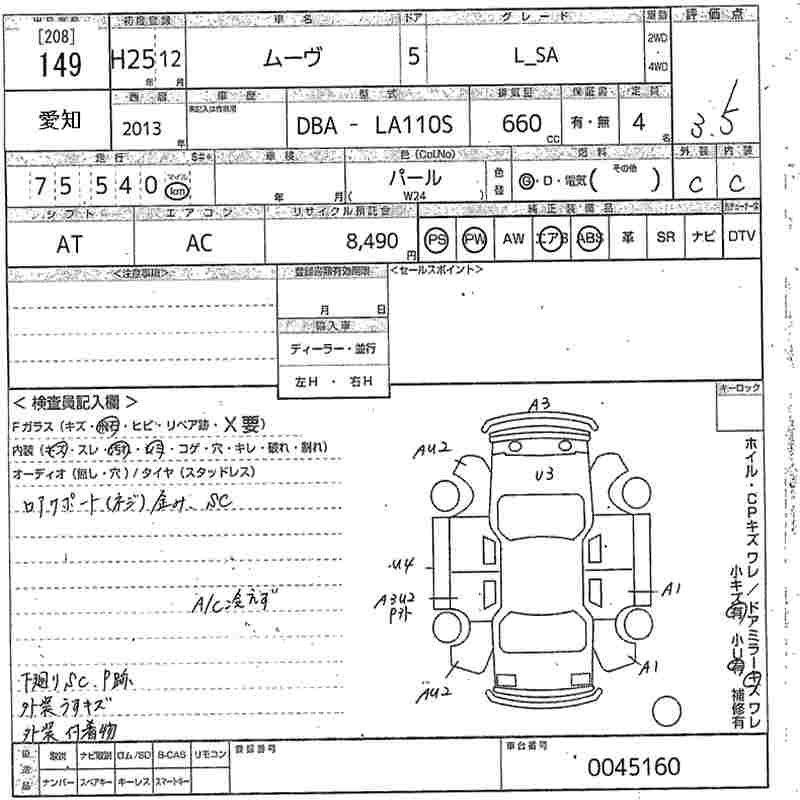 [208]
149
初度登録 車名 ドア グレード 車歴 評価点
H25 12 ムーヴ 5 L_SA
年 月
2WD
・
4WD
愛知
西暦 車歴 型式 排気量 保証書 定員
2013 年 DBA - LA110S 660 CC 有・無 4 名
3.5
走行 車検 色(Col.No) 燃料 外装 内装
75 540 マイル km 年 月 パール (W24) 色替 G・D・電気( その他 ) C C
シフト エアコン リサイクル預託金 純正装備品
AT AC 8,490 円 PS PW AW エアB ABS 革 SR ナビ DTV
<注意事項> 登録書類有効期限 <セールスポイント>
月 日
輸入車
ディーラー・並行
左H ・ 右H
キーロック
< 検査員記入欄 >
Fガラス (キズ・飛石・ヒビ・リペア跡・X要)
内装 (キズ・スレ・汚れ・凹み・コゲ・穴・キレ・破れ・割れ)
オーディオ (無し・穴) / タイヤ (スタッドレス)
SC
A/C冷えず
下廻りSC.P跡
外装うすキズ
外装付着物
A3
AU2
U3
U4
A3U2
Pスト
A1
A1
AU2
ホイル・CPキズワレ/ドアミラーキズワレ
小キズ有 小U有 補修有
取説 ナビ取説 ロム/SD B-CAS リモコン 登録番号 車台番号
ナンバー スペアキー キーレス スマートキー
0045160